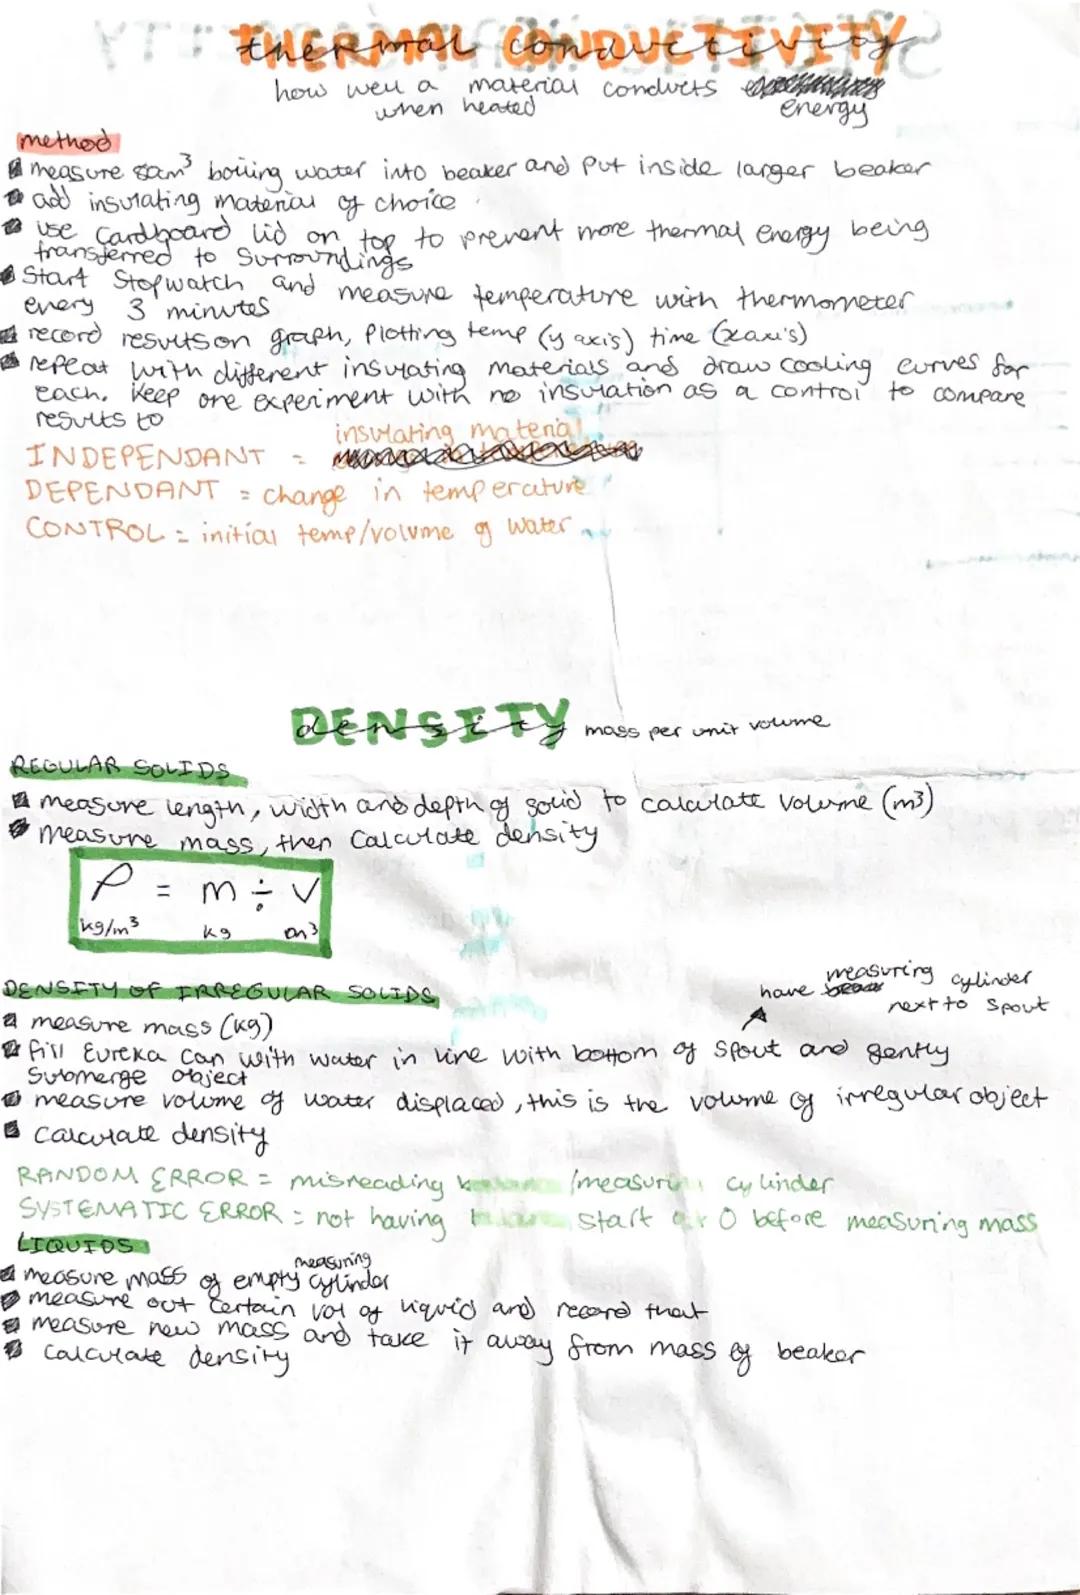 THERMAL CONDUCTIVITY
thermal conductivity
how well a material conducts
when heated energy
method
measure 80cm³ boiling water into beaker and put inside larger beaker
add insulating material of choice
use cardboard lid on top to prevent more thermal energy being
transferred to surroundings
Start Stopwatch and measure temperature with thermometer
every 3 minutes
record results on graph, plotting temp (y axis) time (x axis)
repeat with different insulating materials and draw cooling curves for
each. Keep one experiment with no insulation as a control to compare
results to
insulating material
INDEPENDANT =
DEPENDANT = change in temperature
CONTROL = initial temp/volume of water
DENSITY
density mass per unit volume
REGULAR SOLIDS
measure length, width and depth of solid to calculate volume (m³)
measure mass, then Calculate density
ρ = m ÷ V
kg/m³ kg m³
DENSITY OF IRREGULAR SOLIDS
have measuring cylinder
next to spout
measure mass (kg)
fill Eureka can with water in line with bottom of spout and gently
submerge object
measure volume of water displaced, this is the volume of irregular object
calculate density
RANDOM ERROR = misreading /measuring cylinder
SYSTEMATIC ERROR = not having start 0 before measuring mass
LIQUIDS
measuring
measure mass of empty cylinder
measure out certain vol of liquid and record that
measure new mass and take it away from mass of beaker
calculate density